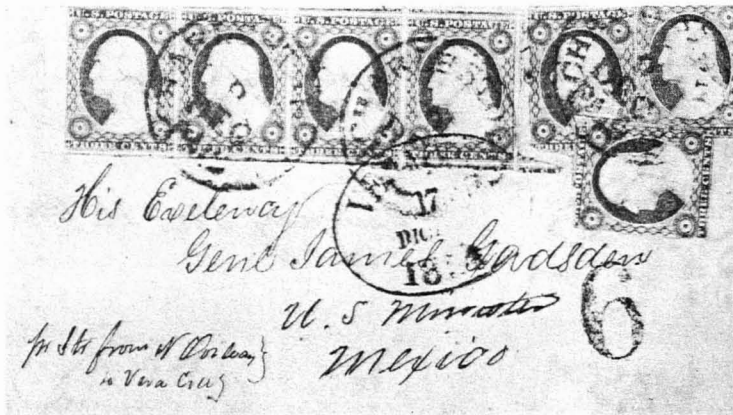 U.S. POSTAGE U.S. POSTAGE U.S. POSTAGE U.S. POSTAGE U.S. POSTAGE
THREE CENTS THREE CENTS THREE CENTS THREE CENTS THREE CENTS
THREE CENTS
17
DIC
18
His Excelency
Genl James Gadsden
U. S Minister
Mexico
6
pr Str from N Orleans
a Vera Cruz